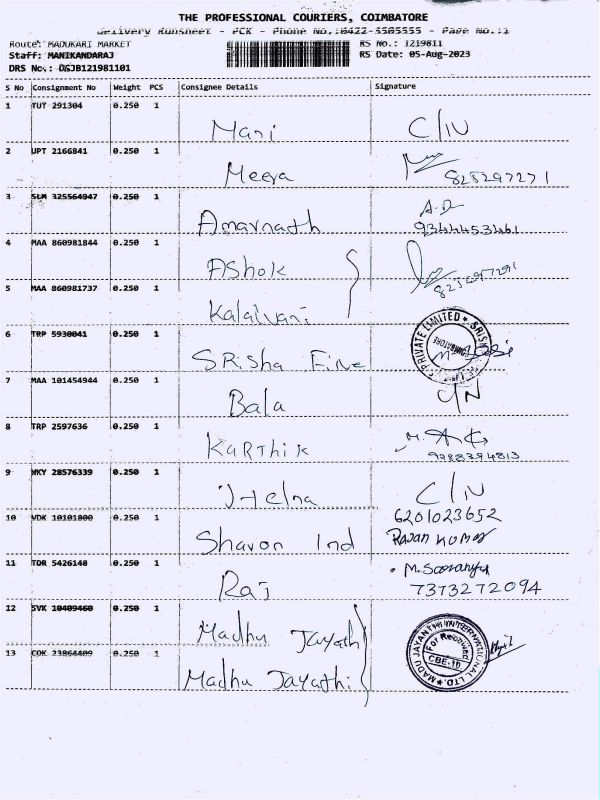 THE PROFESSIONAL COURIERS, COIMBATORE
Delivery Runsheet - PCK - Phone No.:0422-3505555 - Page No.:1
Route: MADUKARI MARKET RS No.: 1219811
Staff: MANIKANDARAJ RS Date: 05-Aug-2023
DRS No.: DSJB121981101
S No Consignment No Weight PCS Consignee Details Signature
1 TUT 291304 0.250 1
Mani C/IV
2 UPT 2166841 0.250 1
Meera
3 SLM 325564947 0.250 1 A.D
Amarnath 9344453461
4 MAA 860981844 0.250 1
Ashok
5 MAA 860981737 0.250 1
Kalaivani
6 TRP 5930041 0.250 1 PRIVATE LIMITED ★ SRISH
SRisha Fine COIMBATORE
7 MAA 101454944 0.250 1
Bala C/N
8 TRP 2597636 0.250 1
KaRThik 9788394813
9 WKY 28576339 0.250 1
C/IV
10 VDK 10101800 0.250 1 6201023652
Sharon Ind Rajan KUMAR
11 TOR 5426148 0.250 1
Raj 7373272094
12 SVK 10409460 0.250 1
Madhu Jayathi MADU JAYANTHI INTERNATIONAL LTD. ★
For Received
13 COK 23864409 0.250 1 CBE-10
Madhu Jayathi